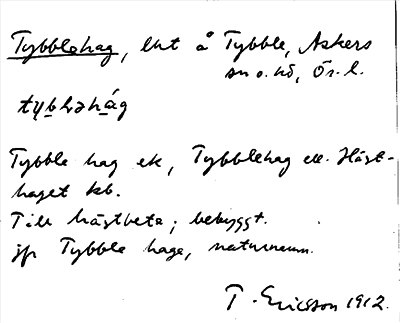 Tybblehag, lht å Tybble, Askers
sn o. hd, Ör. l.
tybləhág
Tybble hag ek, Tybblehag ell. Häst-
haget kb.
Till hästbete; bebyggt.
jfr Tybble hage, naturnamn.
T. Ericsson 1912.